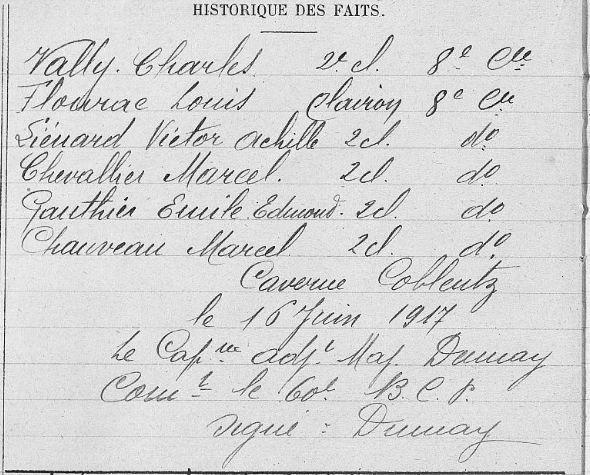 HISTORIQUE DES FAITS.
Vally. Charles 2e cl. 8e Cie
Flourac Louis Clairon 8e Cie
Liénard Victor Achille 2 cl. do
Chevallier Marcel. 2 cl. do
Gauthier Emile Edmond. 2 cl. do
Chauveau Marcel 2 cl. do
Caverne Coblentz
le 16 Juin 1917
Le Capne adjt Maj Dunay
Comt le 60e B.C.P.
signé : Dunay